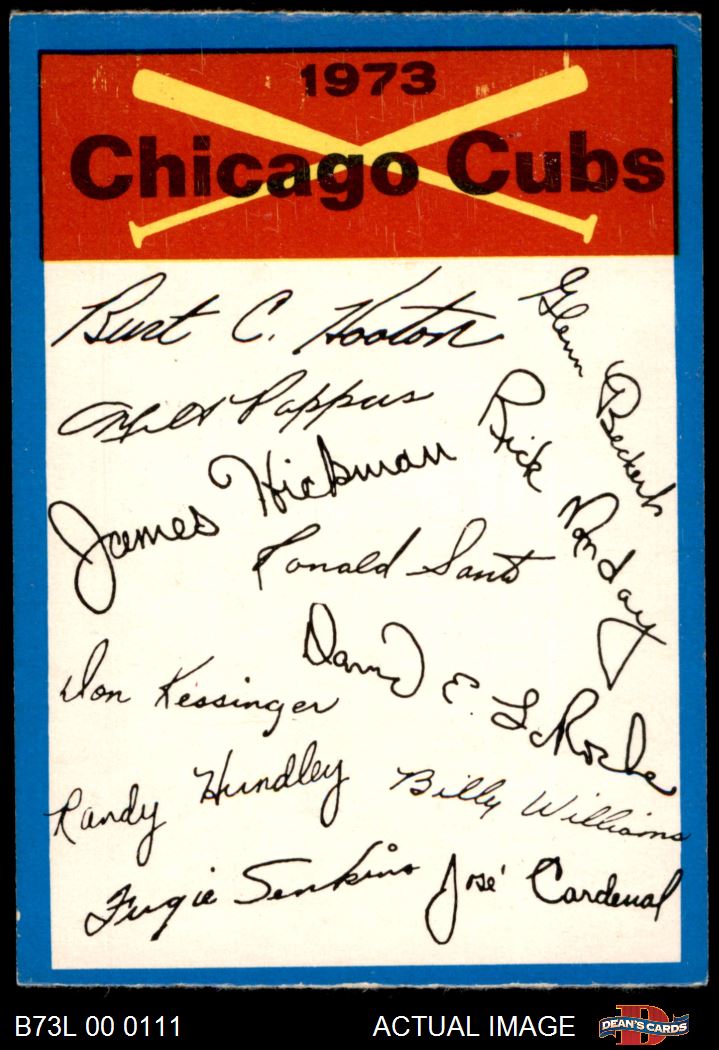 1973
Chicago Cubs
Burt C. Hooton
Glenn Beckert
Milt Pappas
Rick Monday
James Hickman
Ronald Santo
David E. LaRoche
Don Kessinger
Randy Hundley
Billy Williams
Fergie Jenkins
José Cardenal
B73L 00 0111
ACTUAL IMAGE
DEAN'S CARDS